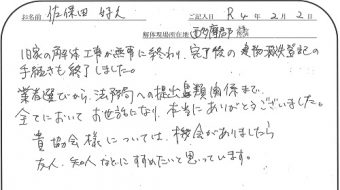 お名前 佐保田 好久 ご記入日 R4年2月2日
解体現場所在地 西多摩郡
旧家の解体工事が無事に終わり、完了後の建物滅失登記の
手続きも終了しました。
業者選びから、法務局への提出書類関係まで、
全てにおいてお世話になり、本当にありがとうございました。
貴協会様については、機会がありましたら
友人、知人などにすすめたいと思っています。